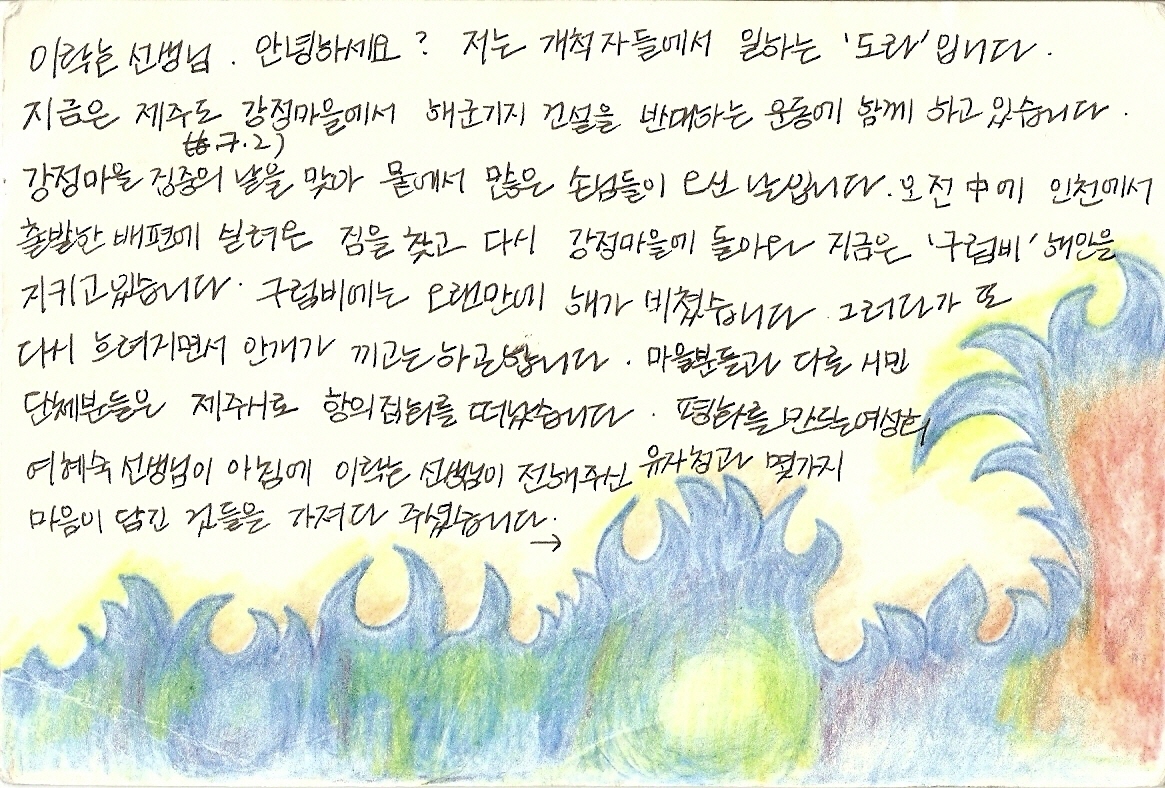 이락는 선생님. 안녕하세요? 저는 개척자들에서 일하는 '도라'입니다.
지금은 제주도 강정마을에서 해군기지 건설을 반대하는 운동에 함께 하고 있습니다.
(7.2)
강정마을 집중의 날을 맞아 뭍에서 많은 손님들이 오신 날입니다. 오전 中에 인천에서
출발한 배편에 실려온 짐을 찾고 다시 강정마을에 돌아와 지금은 '구럼비' 해안을
지키고 있습니다. 구럼비에는 오랜만에 해가 비쳤습니다. 그러다가 또
다시 흐려지면서 안개가 끼고는 하곤합니다. 마을분들과 다를 시민
단체분들은 제주시로 항의집회를 떠났습니다. 평화를 만드는여성회
여혜숙 선생님이 아침에 이락는 선생님이 전해주신 유자청과 몇가지
마음이 담긴 것들을 가져다 주셨습니다.
→